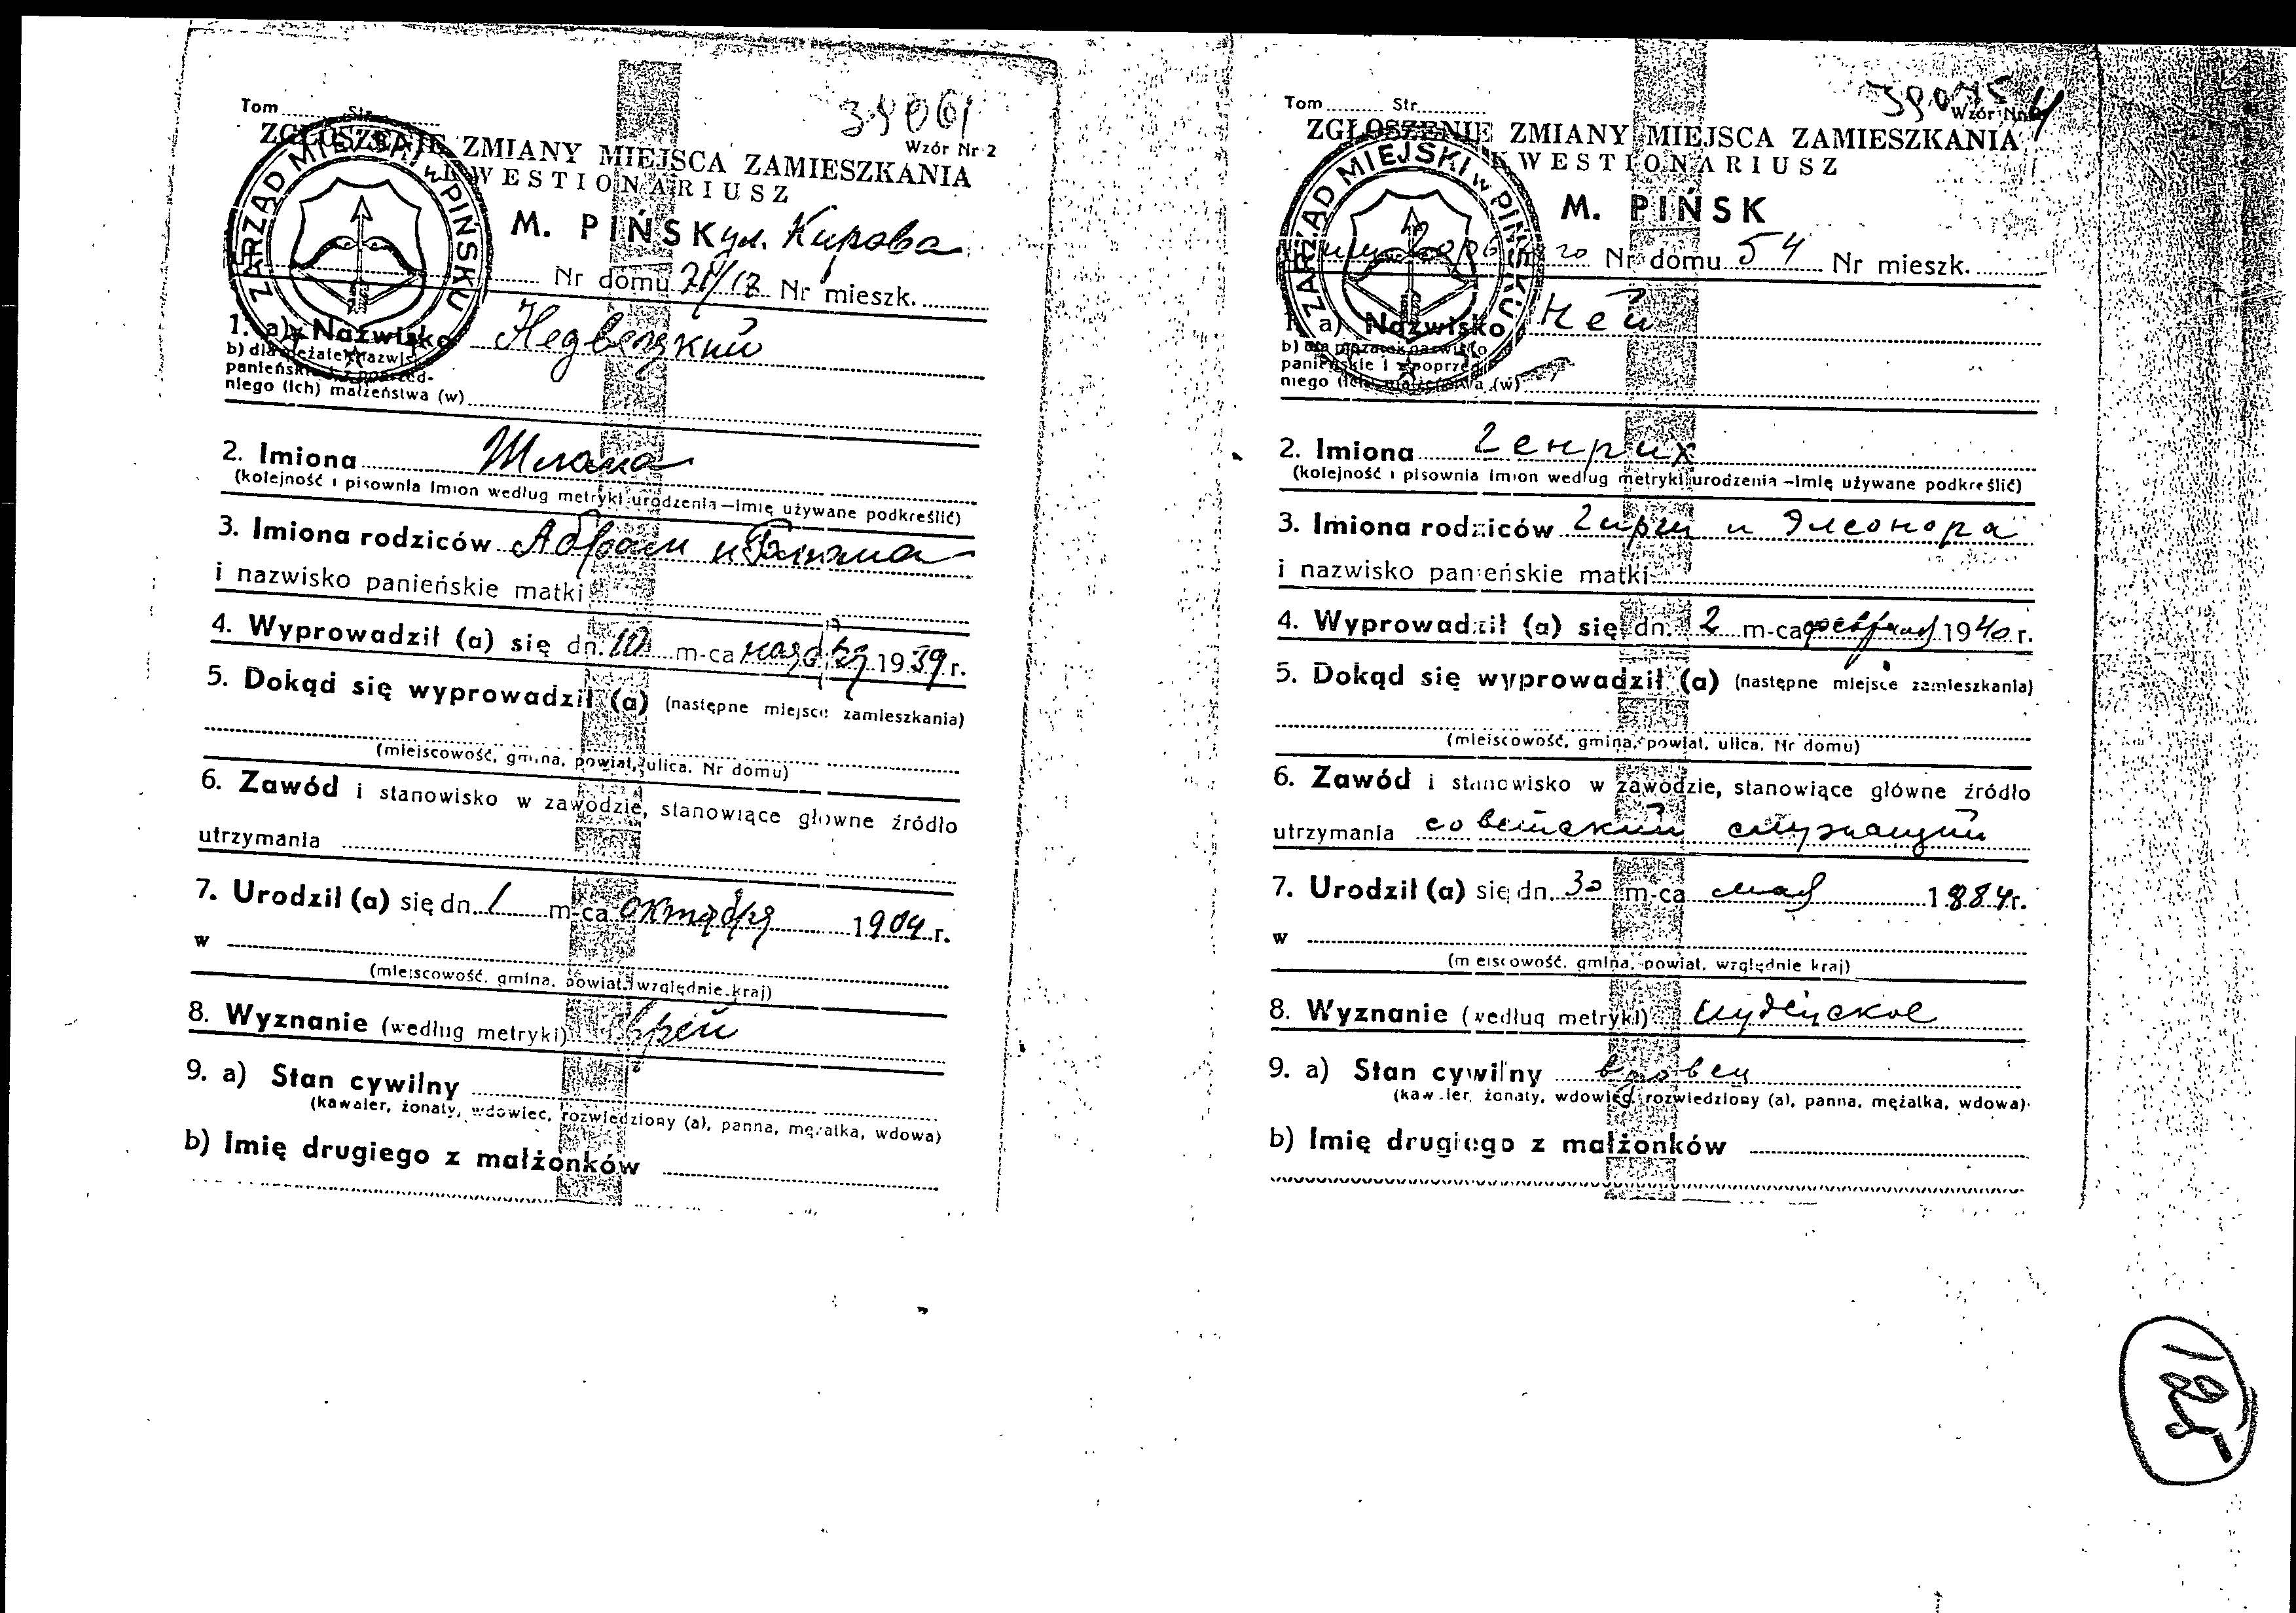 Tom........ Str........
39061
Wzór Nr 2
ZGŁOSZENIE ZMIANY MIEJSCA ZAMIESZKANIA
KWESTIONARIUSZ
ZARZĄD MIEJSKI w PIŃSKU
M. PIŃSK ул. Кирова
Nr domu Nr mieszk.
1. a) Nazwisko
b) dla mężatek nazwisko
panieńskie i z poprzed-
niego (ich) małżeństwa (w)
2. Imiona
(kolejność i pisownia imion według metryki urodzenia—imię używane podkreślić)
3. Imiona rodziców Абрам и
i nazwisko panieńskie matki
4. Wyprowadził (a) się dn. 10 m-ca 1939 r.
5. Dokąd się wyprowadził (a) (następne miejsce zamieszkania)
(miejscowość, gmina, powiat, ulica, Nr domu)
6. Zawód i stanowisko w zawodzie, stanowiące główne źródło
utrzymania
7. Urodził (a) się dn. 1 m-ca октября 1904 r.
w
(miejscowość, gmina, powiat, względnie kraj)
8. Wyznanie (według metryki)
9. a) Stan cywilny
(kawaler, żonaty, wdowiec, rozwiedziony (a), panna, mężatka, wdowa)
b) Imię drugiego z małżonków
Tom........ Str........
Wzór
ZGŁOSZENIE ZMIANY MIEJSCA ZAMIESZKANIA
KWESTIONARIUSZ
ZARZĄD MIEJSKI w PIŃSKU
M. PIŃSK
Nr domu 54 Nr mieszk.
1. a) Nazwisko Ней
b) dla mężatek nazwisko
panieńskie i z poprzed-
niego (ich) małżeństwa (w)
2. Imiona Генрих
(kolejność i pisownia imion według metryki urodzenia—imię używane podkreślić)
3. Imiona rodziców Гирш и Элеонора
i nazwisko panieńskie matki
4. Wyprowadził (a) się dn. 2 m-ca февраля 1940 r.
5. Dokąd się wyprowadził (a) (następne miejsce zamieszkania)
(miejscowość, gmina, powiat, ulica, Nr domu)
6. Zawód i stanowisko w zawodzie, stanowiące główne źródło
utrzymania советский служащий
7. Urodził (a) się dn. 30 m-ca мая 1884 r.
w
(miejscowość, gmina, powiat, względnie kraj)
8. Wyznanie (według metryki) иудейское
9. a) Stan cywilny вдовец
(kawaler, żonaty, wdowiec, rozwiedziony (a), panna, mężatka, wdowa)
b) Imię drugiego z małżonków